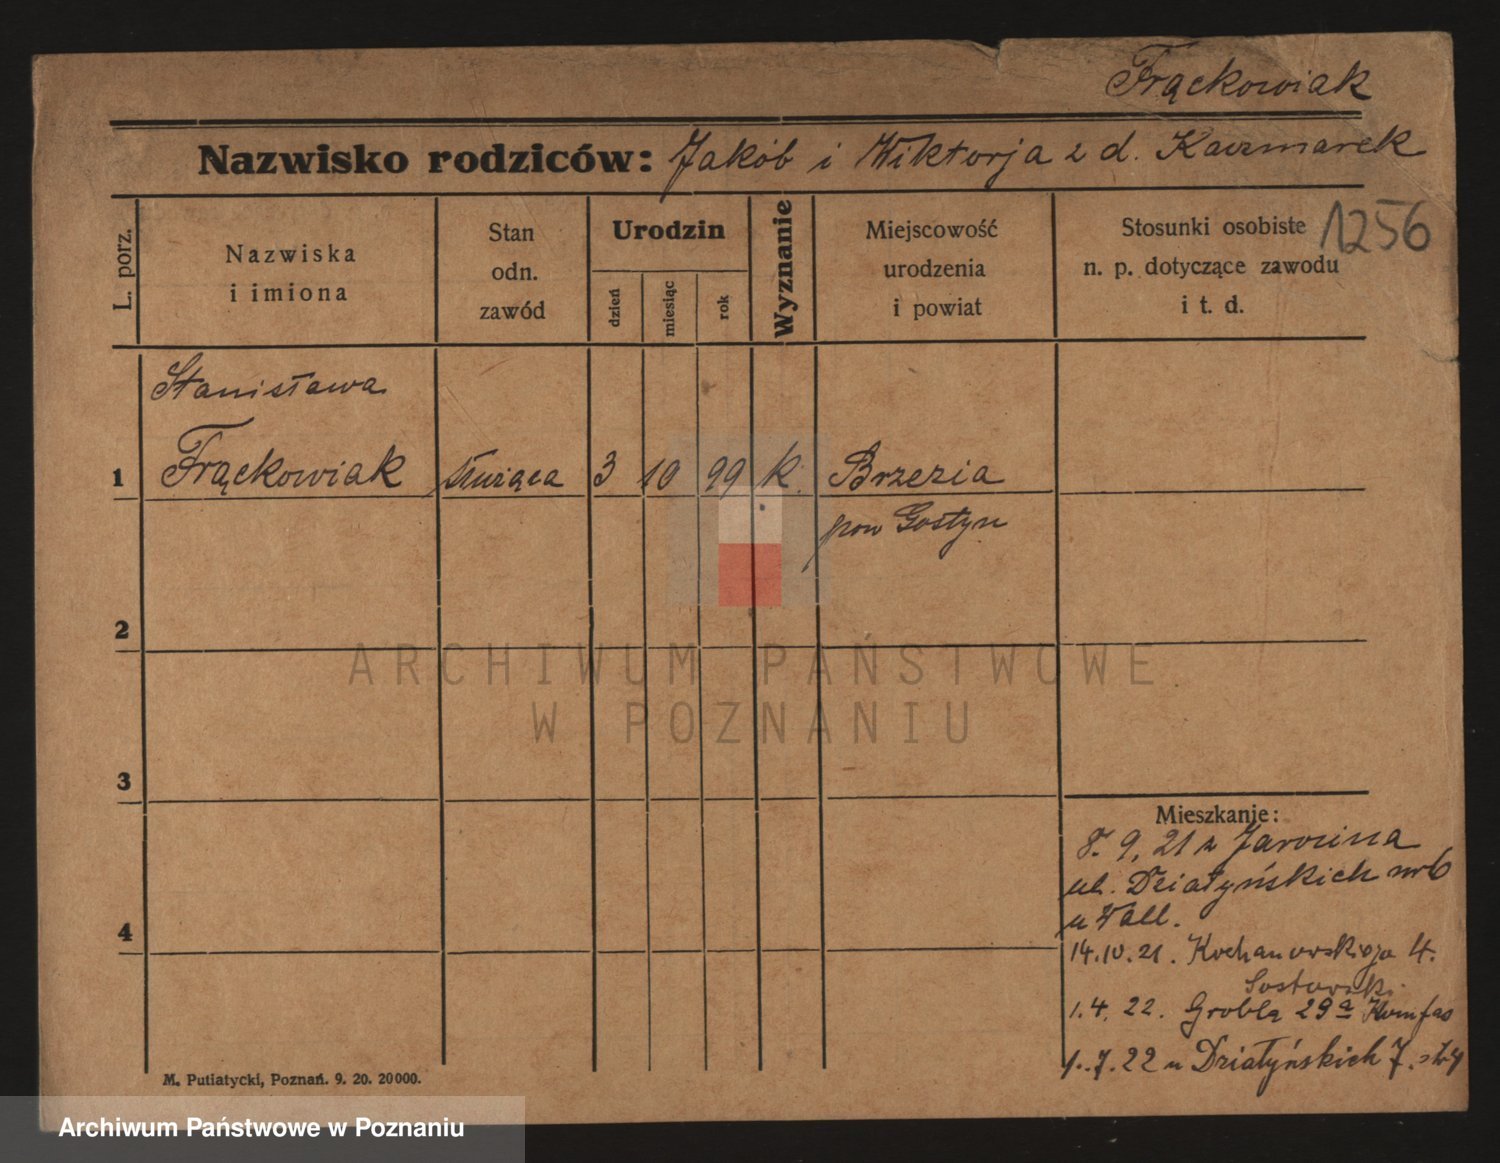 Frąckowiak
Nazwisko rodziców: Jakób i Wiktorja z d. Kaczmarek
1256
L. porz.
Nazwiska
i imiona
Stan
odn.
zawód
Urodzin
dzień
miesiąc
rok
Wyznanie
Miejscowość
urodzenia
i powiat
Stosunki osobiste
n. p. dotyczące zawodu
i t. d.
Stanisława
1 Frąckowiak służąca 3 10 99 k. Brzezia
pow Gostyn
2
ARCHIWUM PAŃSTWOWE
W POZNANIU
3
Mieszkanie:
8. 9. 21 z Jarocina
ul. Działyńskich nr 6
u Wall.
4
14.10.21. Kochanowskiego 4.
1.4.22. Grobla 29a
1.7.22 u Działyńskich 7.
M. Putiatycki, Poznań. 9. 20. 20000.
Archiwum Państwowe w Poznaniu